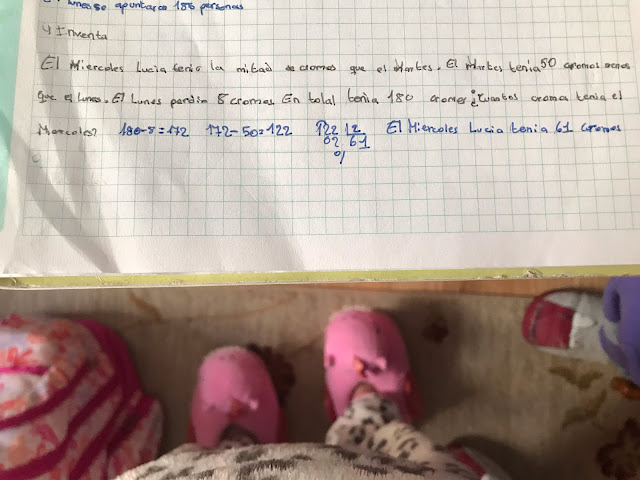 lunes se apuntaron 186 personas
4) Inventa
El Miercoles Lucia tenia la mitad de cromos que el Martes. El Martes tenia 50 cromos menos
que el lunes. El Lunes perdio 8 cromos En total tenia 180 cromos ¿Cuantos cromos tenia el
Miercoles? 180-8=172 172-50=122 122 | 2 El Miercoles Lucia tenia 61 cromos
02 61
0/